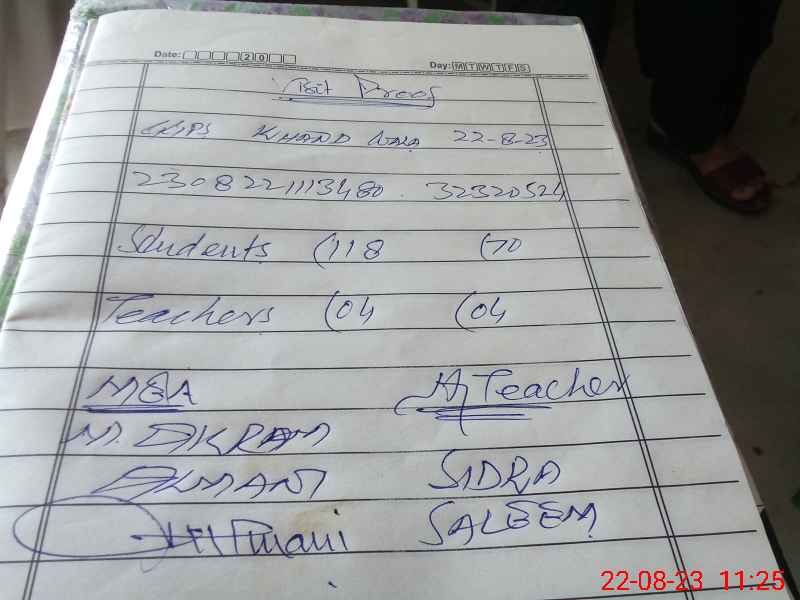 Date: 20
Day: M T W T F S
Visit Proof
GGPS KHAND WALA 22-8-23
2308221113480. 32320524
Students (118 (70
Teachers (04 (04
MEA H/Teacher
M. IKRAM
SIDRA
SALEEM
22-08-23 11:25